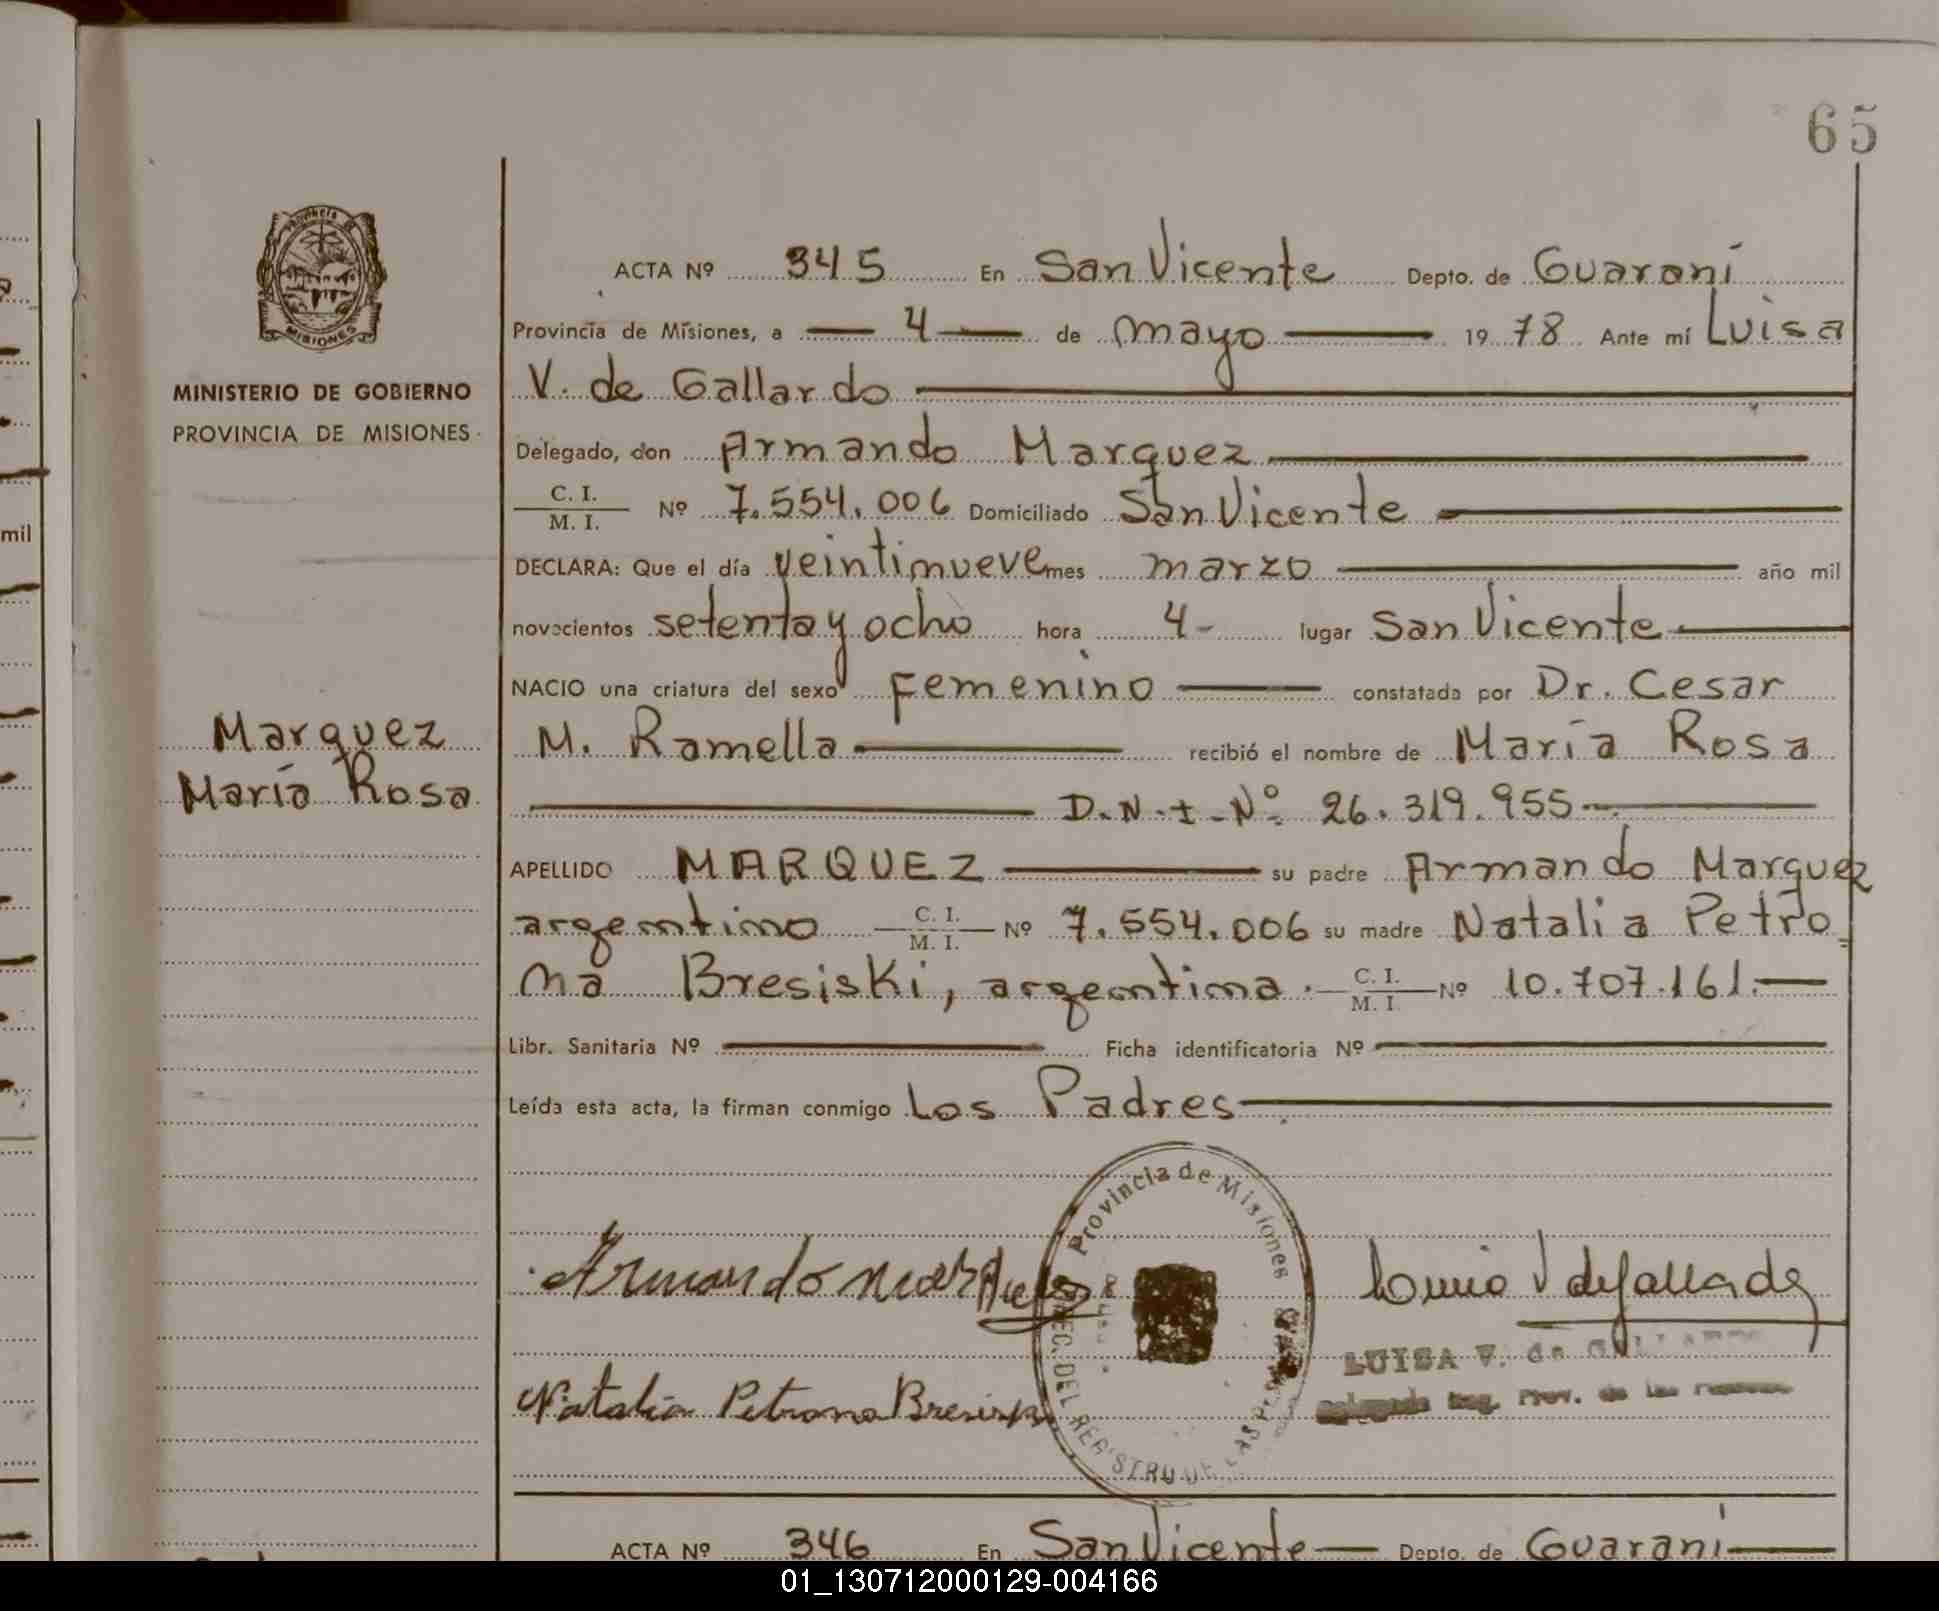 65
PROVINCIA DE
MISIONES
MINISTERIO DE GOBIERNO
PROVINCIA DE MISIONES
Marquez
María Rosa
mil
ACTA Nº 345 En San Vicente Depto. de Guaraní
Provincia de Misiones, a 4 de mayo 1978 Ante mí Luisa
V. de Gallardo
Delegado, don Armando Marquez
C. I. / M. I. Nº 7.554.006 Domiciliado San Vicente
DECLARA: Que el día veintinueve mes marzo año mil
novecientos setenta y ocho hora 4- lugar San Vicente
NACIO una criatura del sexo Femenino constatada por Dr. Cesar
M. Ramella recibió el nombre de María Rosa
D.N.I.Nº 26.319.955
APELLIDO MARQUEZ su padre Armando Marquez
argentino C. I. / M. I. Nº 7.554.006 su madre Natalia Petro
na Bresiski, argentina. C. I. / M. I. Nº 10.707.161.
Libr. Sanitaria Nº Ficha identificatoria Nº
Leída esta acta, la firman conmigo Los Padres
Provincia de Misiones
DEL REGISTRO DE LAS
Armando Marquez
Natalia Petrona Bresiski
LUISA V. de GALLARDO
Delegada Reg. Prov. de las Personas
ACTA Nº 346 En San Vicente Depto. de Guaraní
01_130712000129-004166